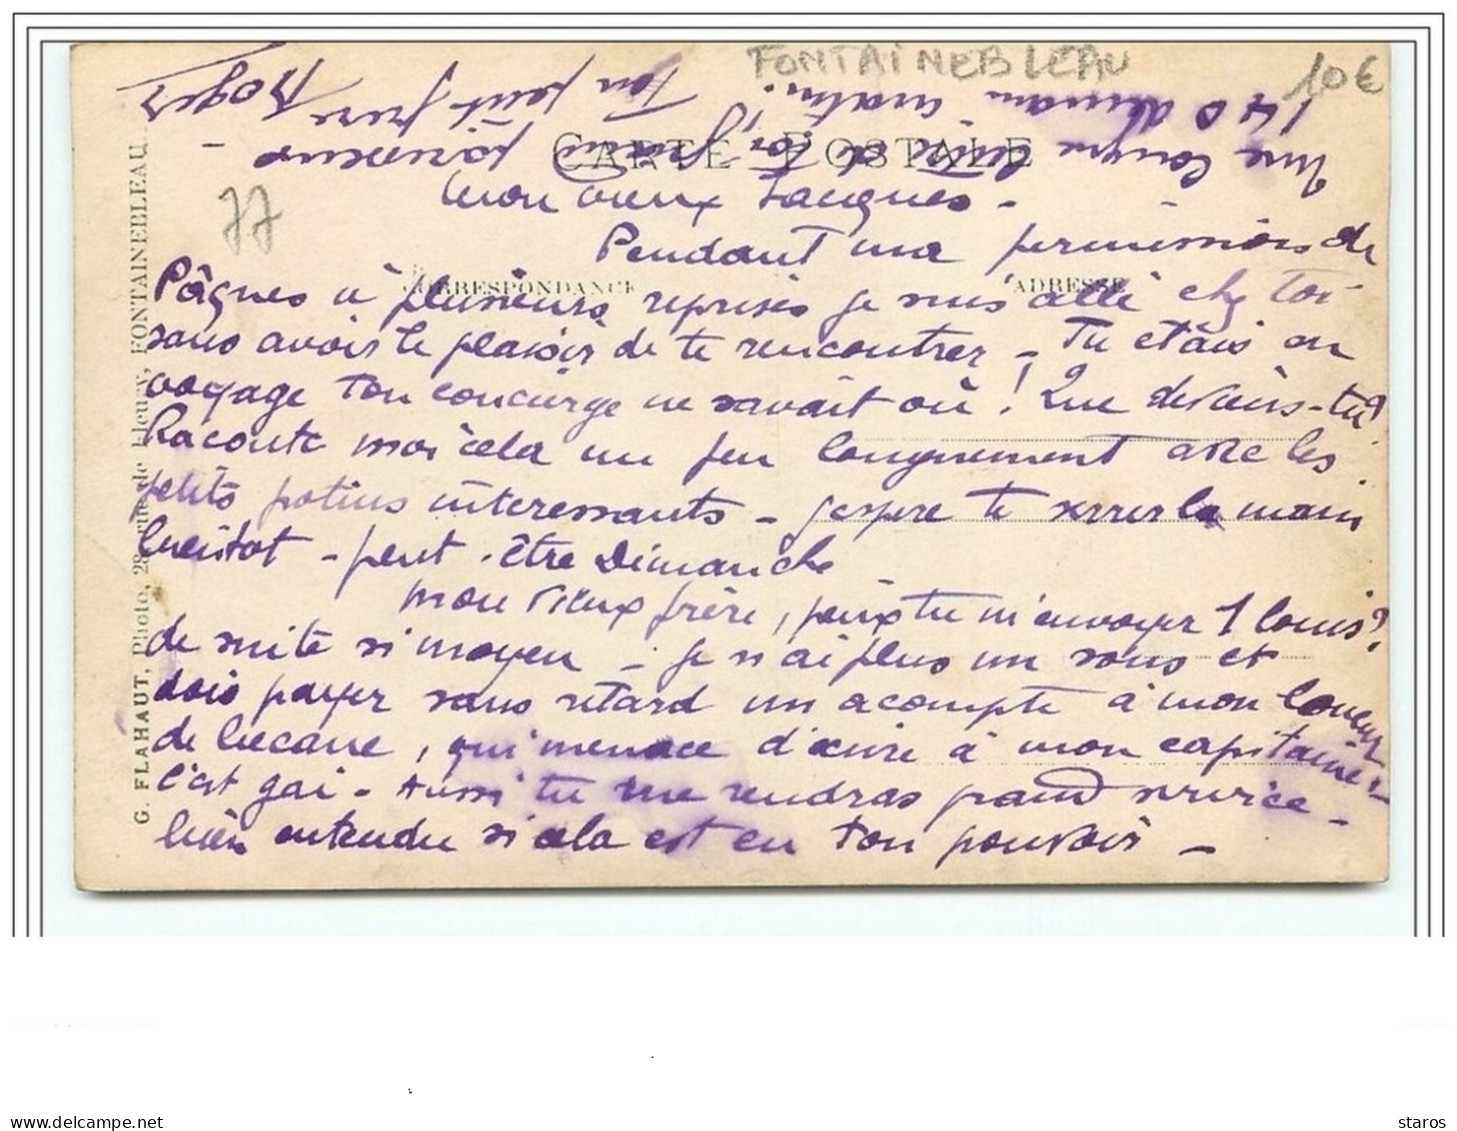 FONTAINEBLEAU
10€
CARTE POSTALE
77
Mon vieux Jacques -
Pendant ma permission de
CORRESPONDANCE
ADRESSE
Pâques à plusieurs reprises je suis allé chez toi
sans avoir le plaisir de te rencontrer - Tu étais en
voyage ton concierge ne savait où ! Que deviens-tu ?
Raconte moi cela un peu longuement avec les
petits potins intéressants - J'espère te serrer la main
bientôt - peut-être Dimanche
Mon vieux frère, peux tu m'envoyer 1 louis ?
de suite si moyen - je n'ai plus un sous et
dois payer sans retard un acompte à mon loueur
de bécane, qui menace d'écrire à mon capitaine -
c'est gai - Aussi tu me rendras grand service -
bien entendu si cela est en ton pouvoir -
Une longue
demain matin.
Ton petit frère
Roger
G. FLAHAUT, Photo, 28, rue de Fleury, FONTAINEBLEAU
staros